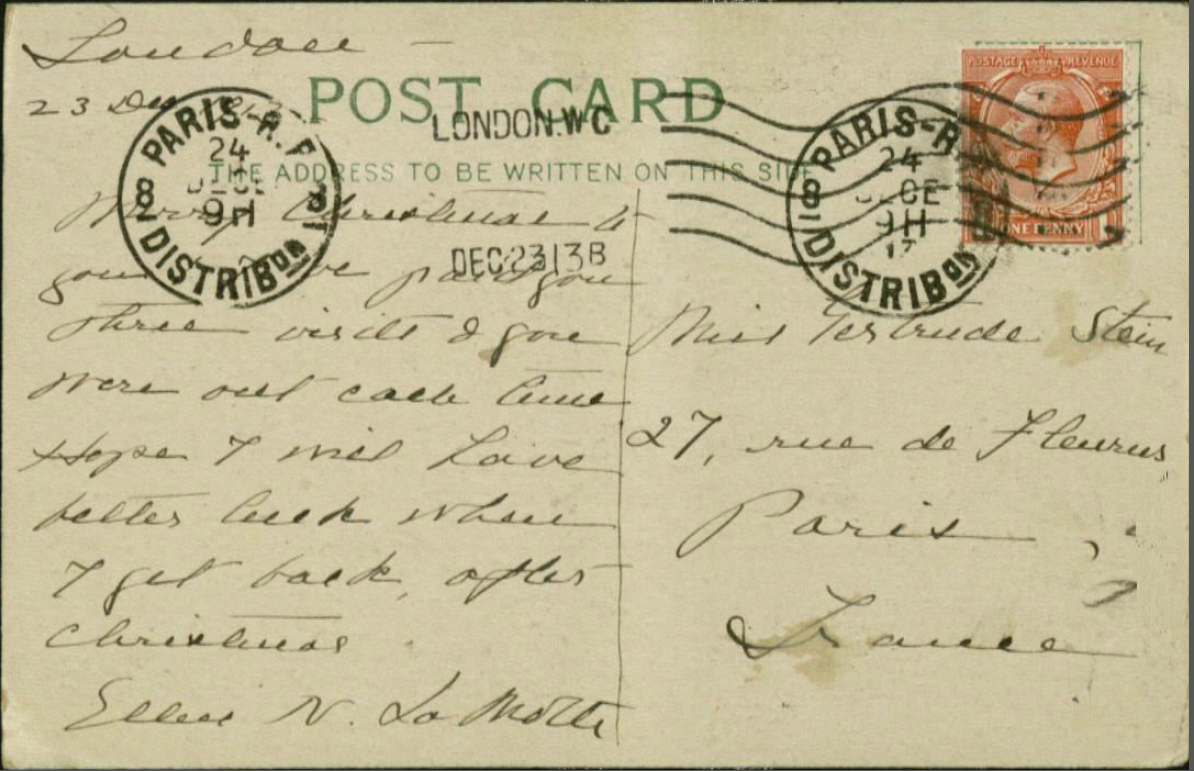 London -
23 Dec
POST CARD
THE ADDRESS TO BE WRITTEN ON THIS SIDE
PARIS-R.P
24
DECE
9H
8 31
DISTRIBon
LONDON.W.C
DEC 23 13 B
PARIS-R.
24
DECE
9H
13
8
DISTRIBon
POSTAGE REVENUE
ONE PENNY
Merry Christmas to
you have paid you
three visits & you
were out each time
Hope I will have
better luck when
I get back, after
Christmas
Ellen N. La Motte
Miss Gertrude Stein
27, rue de Fleurus
Paris,
France